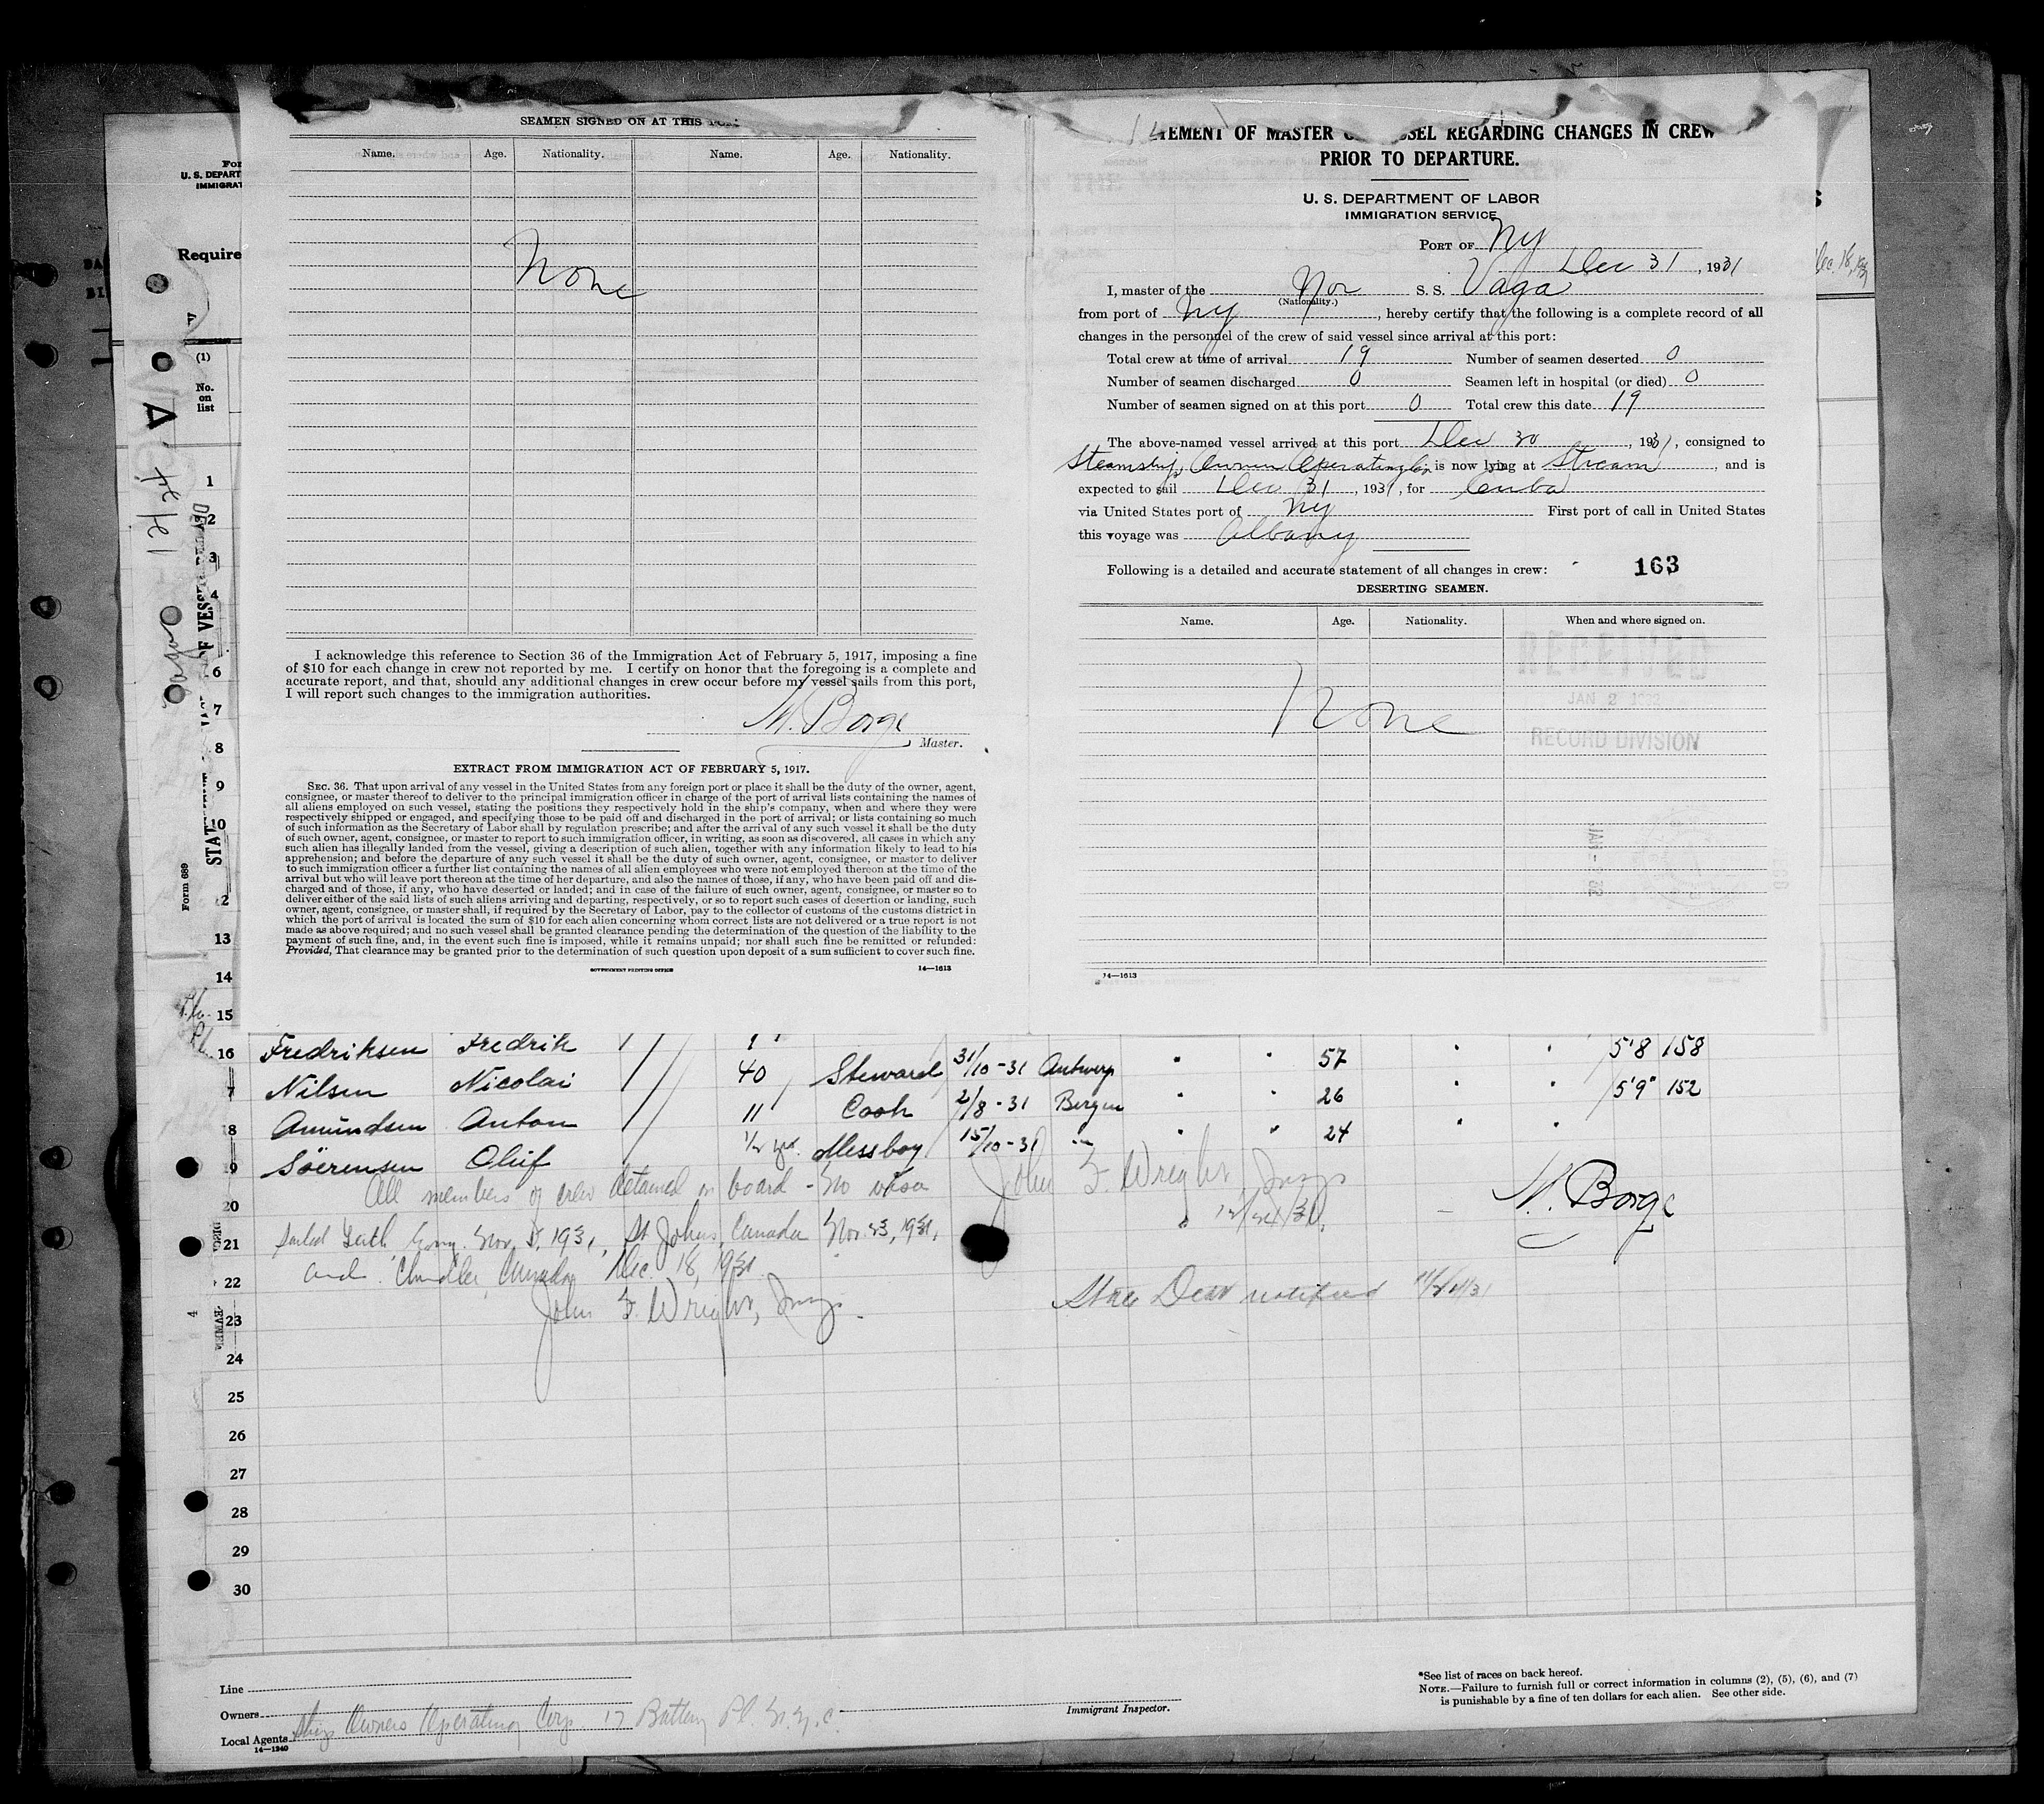 SEAMEN SIGNED ON AT THIS
Name. Age. Nationality. Name. Age. Nationality.
None
I acknowledge this reference to Section 36 of the Immigration Act of February 5, 1917, imposing a fine
of $10 for each change in crew not reported by me. I certify on honor that the foregoing is a complete and
accurate report, and that, should any additional changes in crew occur before my vessel sails from this port,
I will report such changes to the immigration authorities.
M. Borge
Master.
EXTRACT FROM IMMIGRATION ACT OF FEBRUARY 5, 1917.
SEC. 36. That upon arrival of any vessel in the United States from any foreign port or place it shall be the duty of the owner, agent,
consignee, or master thereof to deliver to the principal immigration officer in charge of the port of arrival lists containing the names of
all aliens employed on such vessel, stating the positions they respectively hold in the ship's company, when and where they were
respectively shipped or engaged, and specifying those to be paid off and discharged in the port of arrival; or lists containing so much
of such information as the Secretary of Labor shall by regulation prescribe; and after the arrival of any such vessel it shall be the duty
of such owner, agent, consignee, or master to report to such immigration officer, in writing, as soon as discovered, all cases in which any
such alien has illegally landed from the vessel, giving a description of such alien, together with any information likely to lead to his
apprehension; and before the departure of any such vessel it shall be the duty of such owner, agent, consignee, or master to deliver
to such immigration officer a further list containing the names of all alien employees who were not employed thereon at the time of the
arrival but who will leave port thereon at the time of her departure, and also the names of those, if any, who have been paid off and dis-
charged and of those, if any, who have deserted or landed; and in case of the failure of such owner, agent, consignee, or master so to
deliver either of the said lists of such aliens arriving and departing, respectively, or so to report such cases of desertion or landing, such
owner, agent, consignee, or master shall, if required by the Secretary of Labor, pay to the collector of customs of the customs district in
which the port of arrival is located the sum of $10 for each alien concerning whom correct lists are not delivered or a true report is not
made as above required; and no such vessel shall be granted clearance pending the determination of the question of the liability to the
payment of such fine, and, in the event such fine is imposed, while it remains unpaid; nor shall such fine be remitted or refunded:
Provided, That clearance may be granted prior to the determination of such question upon deposit of a sum sufficient to cover such fine.
GOVERNMENT PRINTING OFFICE 14—1613
TEMENT OF MASTER SSEL REGARDING CHANGES IN CREW
PRIOR TO DEPARTURE.
U. S. DEPARTMENT OF LABOR
IMMIGRATION SERVICE
PORT OF Ny
Dec 31, 1931
I, master of the Nor S. S. Vaga
(Nationality.)
from port of Ny, hereby certify that the following is a complete record of all
changes in the personnel of the crew of said vessel since arrival at this port:
Total crew at time of arrival 19 Number of seamen deserted 0
Number of seamen discharged 0 Seamen left in hospital (or died) 0
Number of seamen signed on at this port 0 Total crew this date 19
The above-named vessel arrived at this port Dec 30, 1931, consigned to
Steamship Owners Operating Co is now lying at Stream, and is
expected to sail Dec 31, 1931, for Cuba
via United States port of Ny First port of call in United States
this voyage was Albany
Following is a detailed and accurate statement of all changes in crew: 163
DESERTING SEAMEN.
Name. Age. Nationality. When and where signed on.
RECEIVED
JAN 2
RECORD DIVISION
None
14—1613
For
U. S. DEPART
IMMIGRAT
Require
(1)
No.
on
list
1
2
3
4
6
7
8
9
10
2
13
14
15
Form 689
16 Fredriksen Fredrik 5'8 158
7 Nilsen Nicolai 40 Steward 31/10-31 Antwerp " " 57 " " 5'9" 152
18 Amundsen Anton 11 Cook 2/8-31 Bergen " " 26 " "
19 Söerensen Oluf 1/2 yr. Messboy 15/10-31 " " " 24 " "
20 All members of crew detained on board - No visa John F. Wright, Insp. M. Borge
12/24/31
21 Sailed Leith Nov. 1931, St Johns, Canada Nov. 23, 1931,
22 and Chandler, Canada Dec. 18, 1931
23 John F. Wright, Insp.
State Dept notified
24
25
26
27
28
29
30
Line
Owners
Local Agents Ships Owners Operating Corp. 17 Battery Pl. N.Y.C.
14—1240
Immigrant Inspector.
*See list of races on back hereof.
NOTE.—Failure to furnish full or correct information in columns (2), (5), (6), and (7)
is punishable by a fine of ten dollars for each alien. See other side.